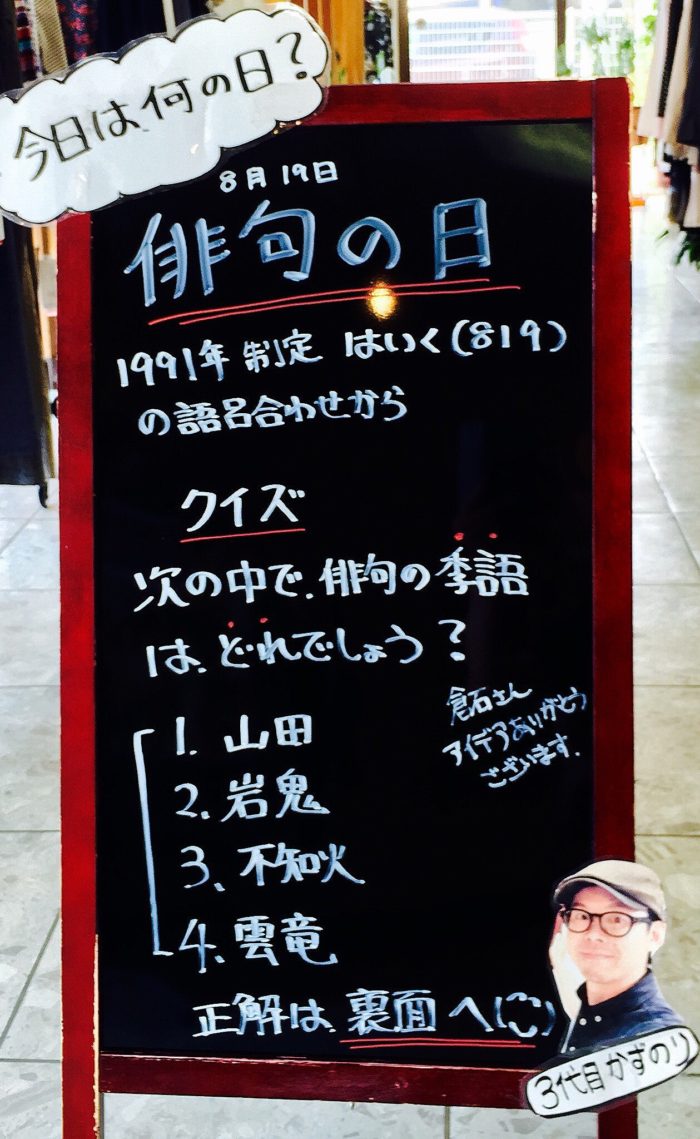 今日は何の日?
8月19日
俳句の日
1991年 制定 はいく(819)
の語呂合わせから
クイズ
次の中で、俳句の季語
は、どれでしょう?
1. 山田
2. 岩鬼
3、不知火
4. 雲竜
倉石さん
アイデアありがとう
ございます.
正解は、裏面へ
3代目かずのり